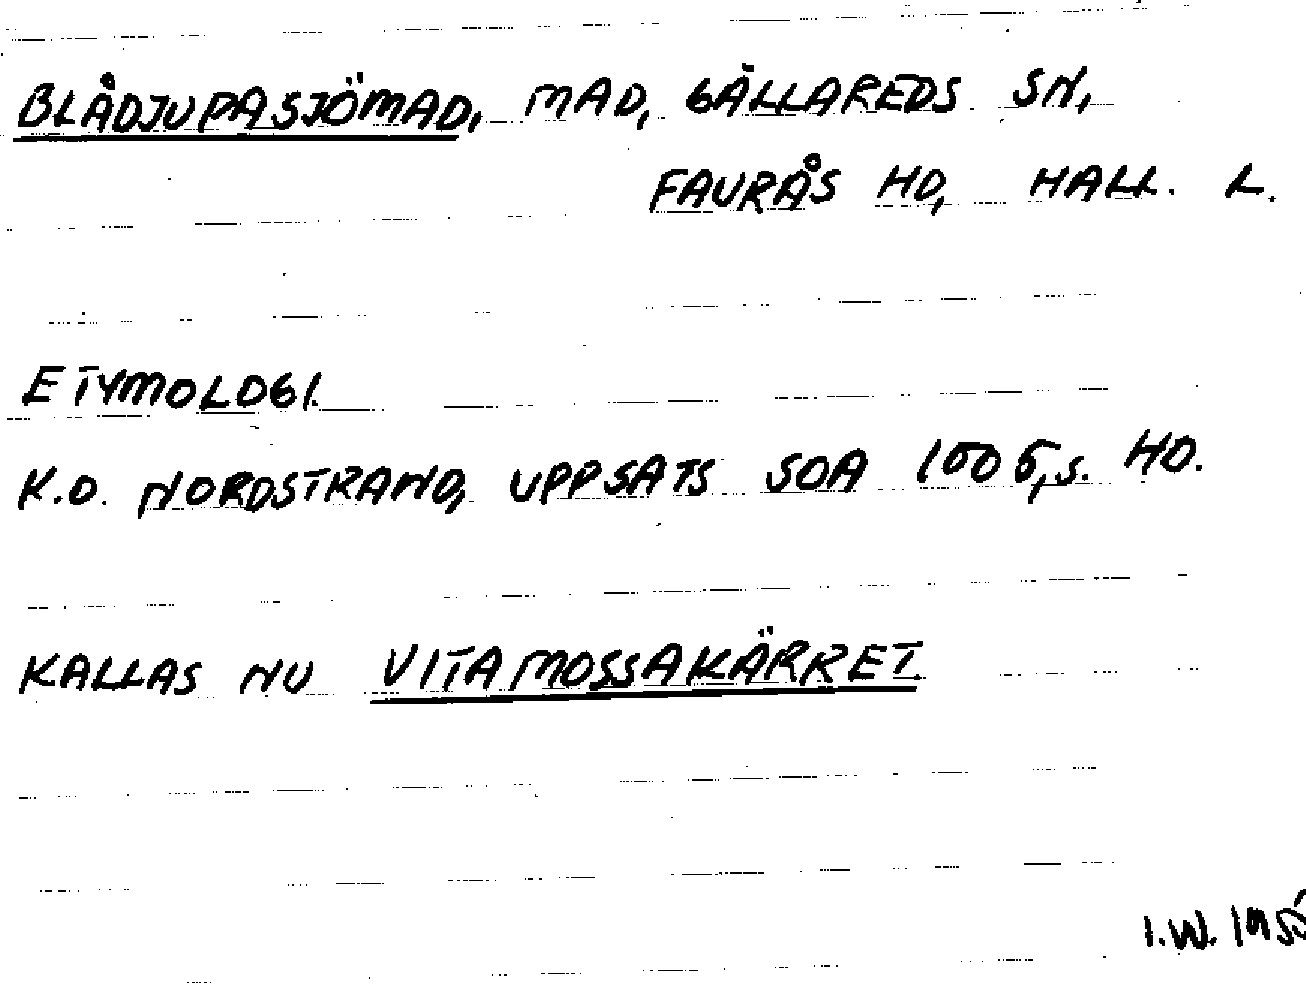 BLÅDJUPASJÖMAD, MAD, GÄLLAREDS SN,
FAURÅS HD, HALL. L.
ETYMOLOGI.
K.O. NORDSTRAND, UPPSATS SOA 1006, s. 40.
KALLAS NU VITAMOSSAKÄRRET.
I.W.